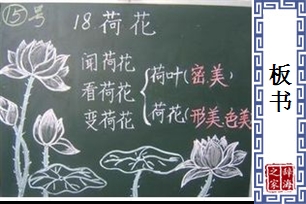 ⑮号
18荷花
闻荷花
看荷花
变荷花
荷叶(密美)
荷花(形美、色美)
板书
辞海之家